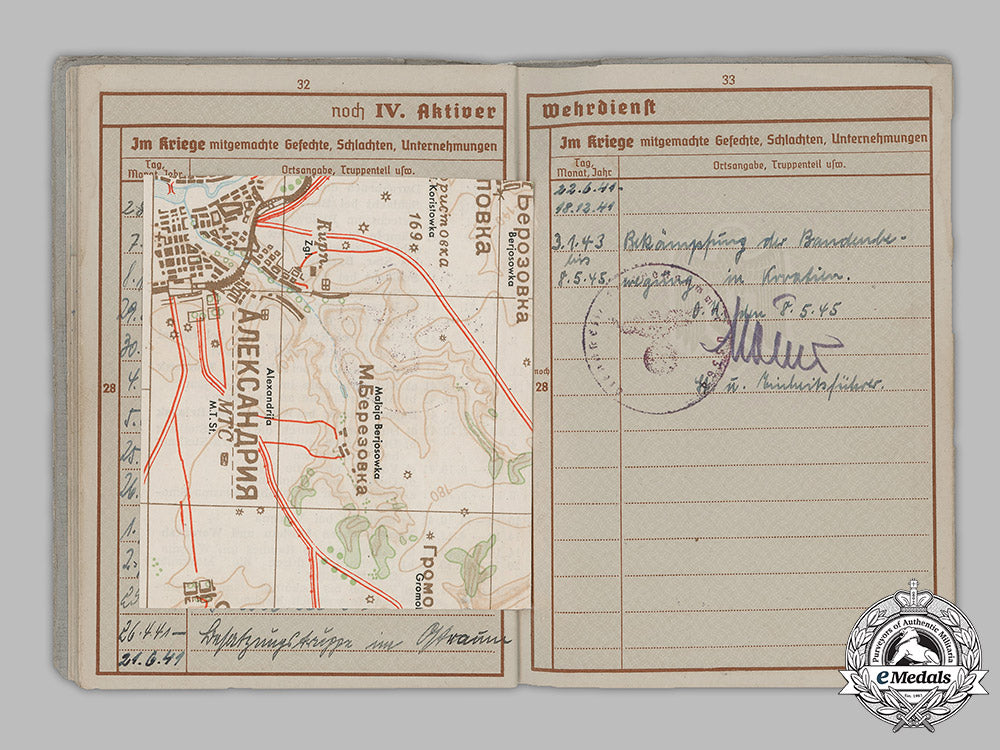 32
noch IV. Aktiver
Im Kriege mitgemachte Gefechte, Schlachten, Unternehmungen
Tag, Monat, Jahr
Ortsangabe, Truppenteil usw.
7.
29.
30.
4.
5.
25.
26.
1.
2.
28
26.4.41 – Besatzungstruppe im Ostraum
21.6.41
Koristowka
169
Berjosowka
БЕРЕЗОВКА
Кирп.
Zgl.
АЛЕКСАНДРИЯ
Alexandrija
МТС
M.T.St.
М.Березовка
Malaja Berjosowka
180
Громо
Gromo
33
Wehrdienst
Im Kriege mitgemachte Gefechte, Schlachten, Unternehmungen
Tag, Monat, Jahr
Ortsangabe, Truppenteil usw.
22.6.41-
18.12.41
3.1.43 Bekämpfung der Bandenbe-
bis
8.5.45 wegung in Kroatien.
O.U., den 8.5.45
u. Einheitsführer.
noch
28
Purveyors of Authentic Militaria
eMedals